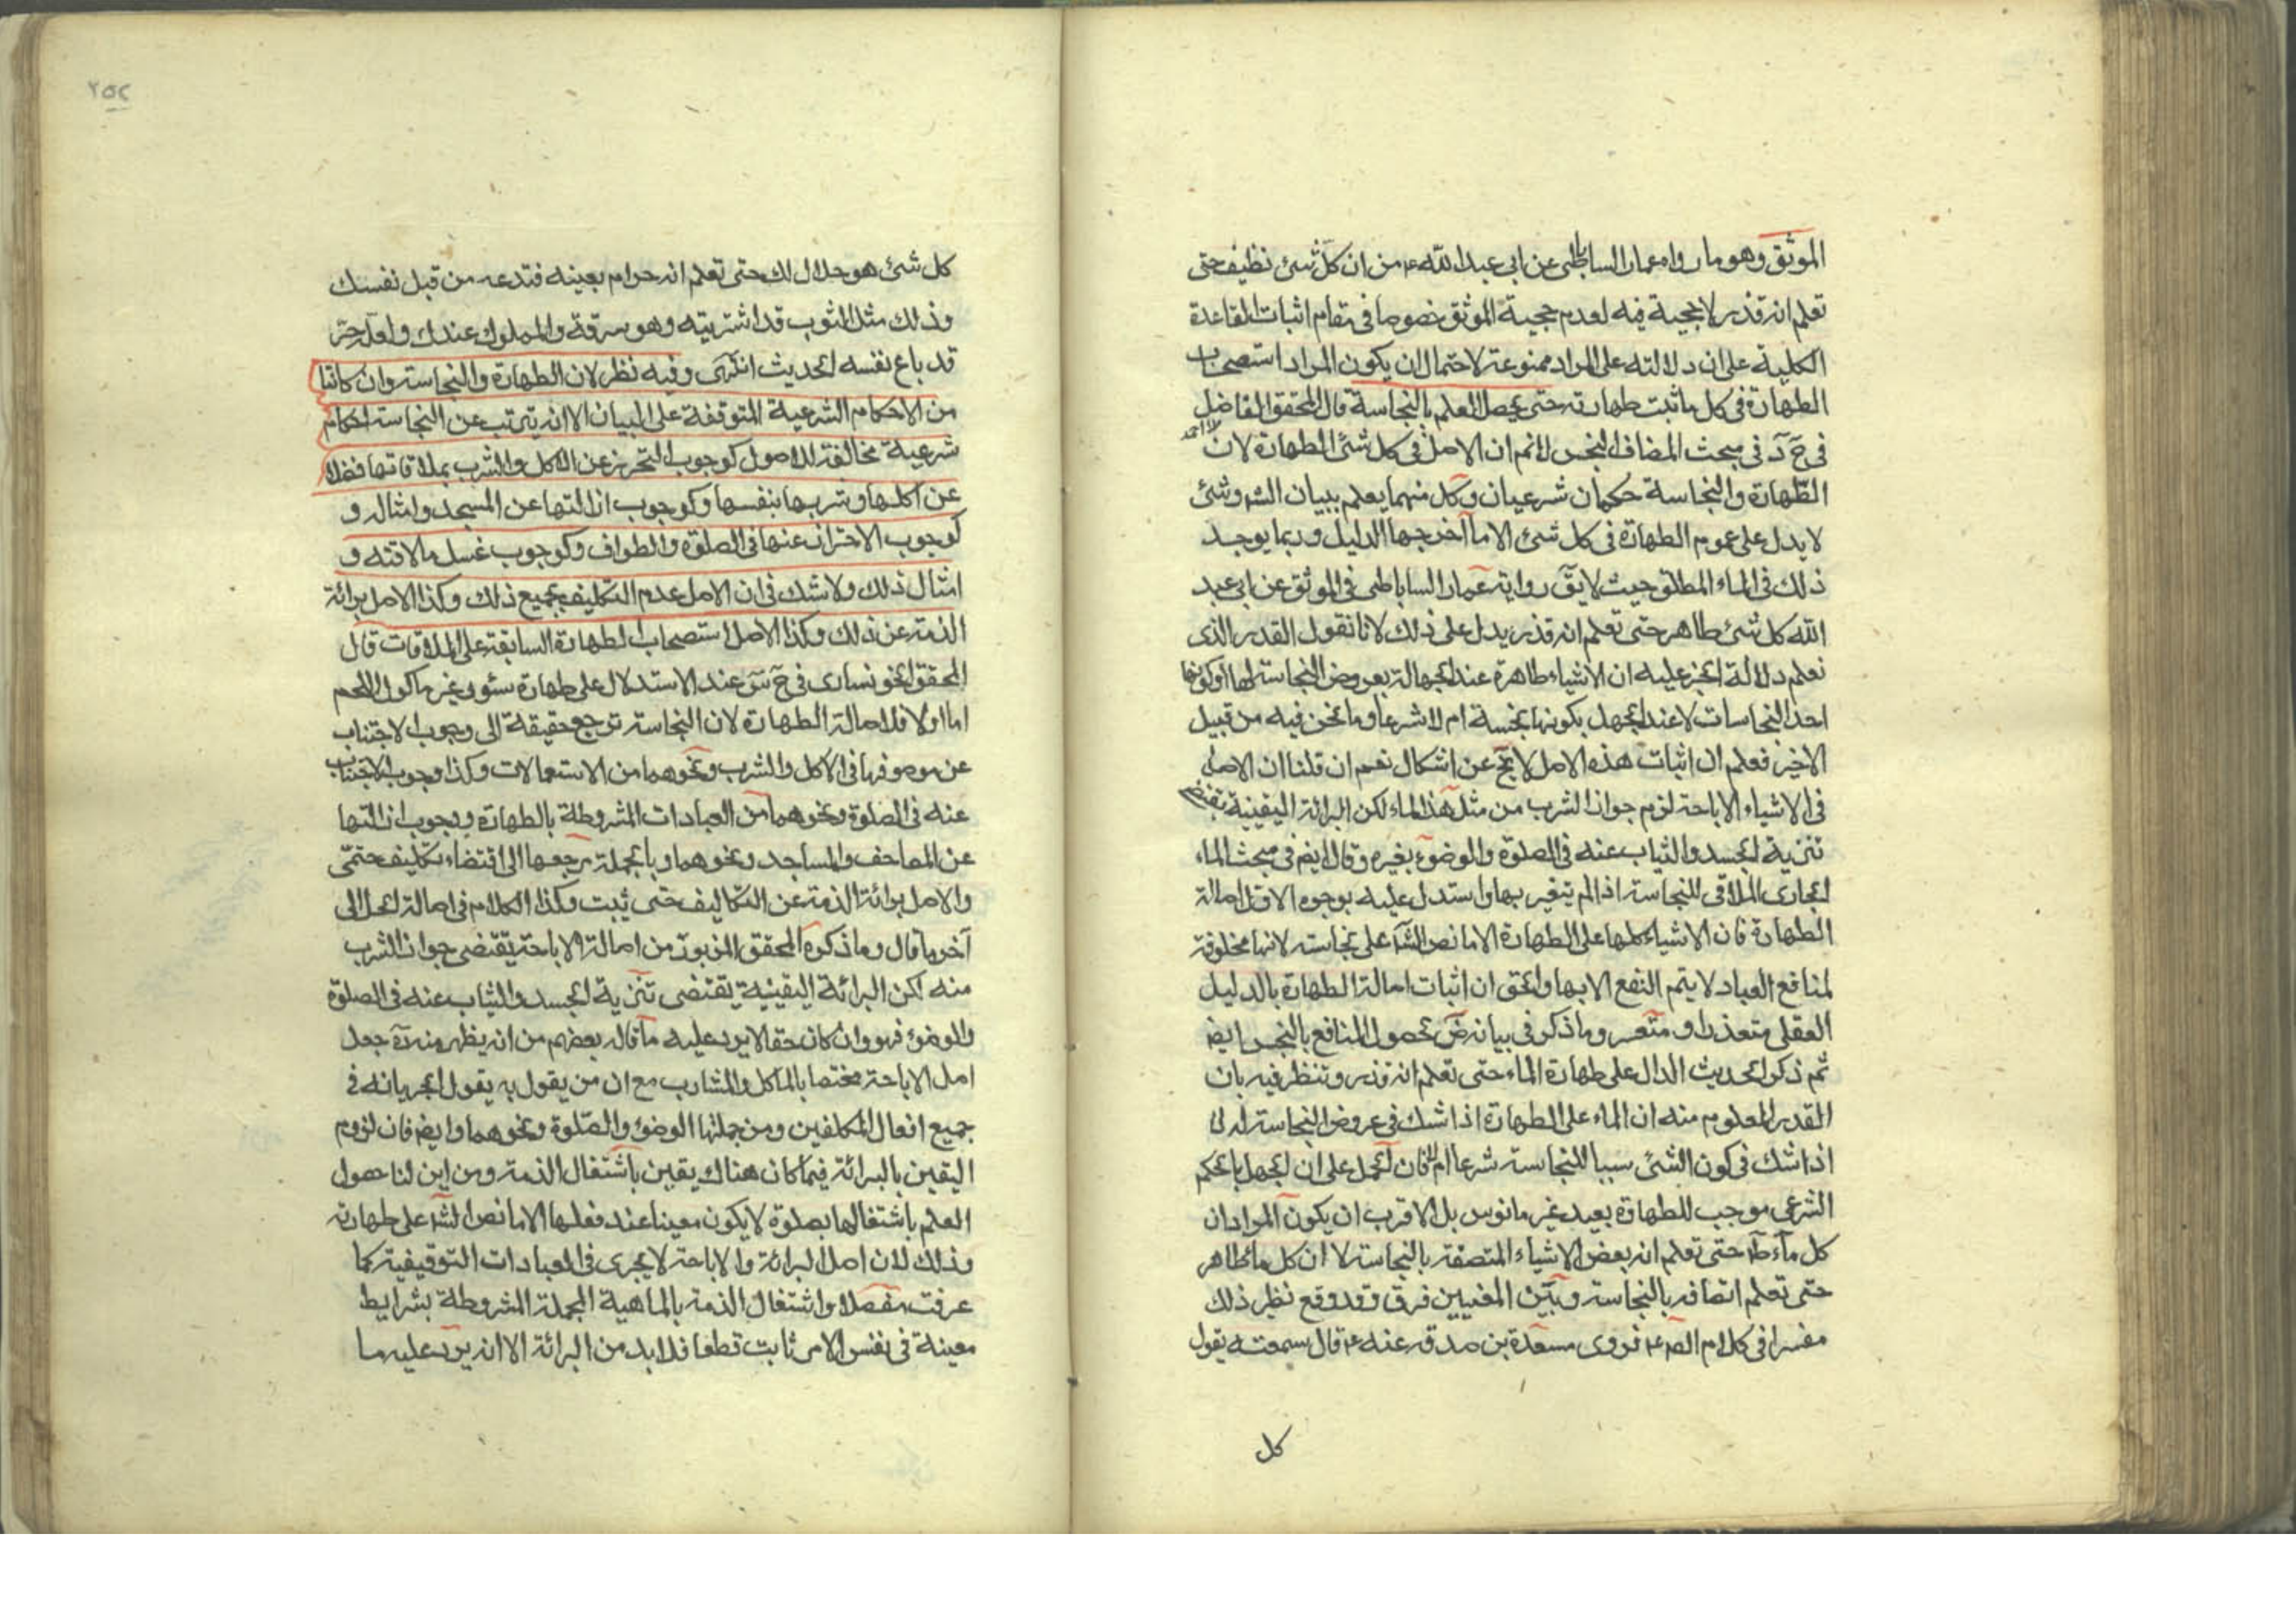 الموثق وهو ما رواه عمار الساباطى عن ابى عبد الله ع من ان كل شئ نظيف حتى
تعلم انه قذر لا حجية فيه لعدم حجية الموثق خصوصا فى مقام اثبات القاعدة
الكلية على ان دلالته على المراد ممنوعة لاحتمال ان يكون المراد استصحاب
الطهارة فى كل ما ثبت طهارته حتى يحصل العلم بالنجاسة قال المحقق الفاضل
فى ح د فى مبحث المضاف النجس لا نم ان الاصل فى كل شئ الطهارة لان
الطهارة والنجاسة حكمان شرعيان وكل منهما يعلم ببيان الشر وشئ
لا يدل على عموم الطهارة فى كل شئ الا ما اخرجها الدليل وربما يوجد
ذلك فى الماء المطلق حيث لا يق رواية عمار الساباطى فى الموثق عن ابى عبد
الله كل شئ طاهر حتى تعلم انه قذر يدل على ذلك لانا نقول القدر الذى
نعلم دلالة الخبر عليه ان الاشياء طاهرة عند الجهالة بعروض النجاسة لها او كونها
احد النجاسات لا عند الجهل بكونها نجسة ام لا شرعا وما نحن فيه من قبيل
الاخير فعلم ان اثبات هذه الاصل لا يخ عن اشكال نعم ان قلنا ان الاصل
فى الاشياء الاباحة لزم جواز الشرب من مثل هذا الماء لكن البرائة اليقينية يقتضى
تنزيه الجسد والثياب عنه فى الصلوة والوضوء بغيره وقال ايض فى مبحث الماء
الجارى الملاقى للنجاسة اذا لم يتغير بها واستدل عليه بوجوه الاول اصالة
الطهارة فان الاشياء كلها على الطهارة الا ما نص الش على نجاسته لانها مخلوقة
لمنافع العباد لا يتم النفع الا بها والحق ان اثبات اصالة الطهارة بالدليل
العقلى متعذر او متعسر وما ذكر فى بيانه ض بحصول المنافع بالنجس ايض
ثم ذكر الحديث الدال على طهارة الماء حتى تعلم انه قذر وتنظر فيه بان
القدر المعلوم منه ان الماء على الطهارة اذا شك فى عروض النجاسة له لا
اذا شك فى كون الشئ سببا للنجاسة شرعا ام لا فان الحمل على ان الجهل بالحكم
الشرعى موجب للطهارة بعيد غير مانوس بل الاقرب ان يكون المراد ان
كل ماء ط حتى تعلم انه بعض الاشياء المتصفة بالنجاسة لا ان كل ماء طاهر
حتى تعلم اتصافه بالنجاسة وبين المعنيين فرق وقد وقع نظير ذلك
مفسرا فى كلام الص ع فروى مسعدة بن صدقه عنه ع قال سمعته يقول
كل
٢٥٢
كل شئ هو حلال لك حتى تعلم انه حرام بعينه فتدعه من قبل نفسك
وذلك مثل الثوب قد اشتريته وهو سرقة والمملوك عندك ولعله حر
قد باع نفسه الحديث انتهى وفيه نظر لان الطهارة والنجاسة وان كانتا
من الاحكام الشرعية المتوقفة على البيان الا انه يترتب عن النجاسة احكام
شرعية مخالفة للاصول كوجوب التحرز عن الاكل والشرب بملاقاتها فضلا
عن اكلها وشربها بنفسها وكوجوب ازالتها عن المسجد وامثاله و
كوجوب الاحتراز عنها فى الصلوة والطواف وكوجوب غسل ملاقته و
امثال ذلك ولا شك فى ان الاصل عدم التكليف بجميع ذلك وكذا الاصل برائة
الذمة عن ذلك وكذا الاصل استصحاب الطهارة السابقة على الملاقات قال
المحقق الخونسارى فى ح س عند الاستدلال على طهارة سئور غير ماكول اللحم
اما اولا فلاصالة الطهارة لان النجاسة ترجع حقيقة الى وجوب الاجتناب
عن موصوفها فى الاكل والشرب ونحوهما من الاستعمالات وكذا وجوب الاجتناب
عنه فى الصلوة ونحوهما من العبادات المشروطة بالطهارة ووجوب ازالتها
عن المصاحف والمساجد ونحوهما وبالجملة مرجعها الى اقتضاء تكليف حتمى
والاصل برائة الذمة عن التكاليف حتى ثبت وكذا الكلام فى اصالة الحل الى
آخر ما قال وما ذكره المحقق المزبور من اصالة الاباحة يقتضى جواز الشرب
منه لكن البرائة اليقينية يقتضى تنزيه الجسد والثياب عنه فى الصلوة
والوضوء فهو وان كان حقا لا يرد عليه ما قاله بعضهم من انه يظهر منه ره جعل
اصل الاباحة مختصا بالماكل والمشارب مع ان من يقول به يقول لجريانه فى
جميع افعال المكلفين ومن جملتها الوضوء والصلوة ونحوهما وايض فان لزوم
اليقين بالبرائة فيما كان هناك يقين باشتغال الذمة ومن اين لنا حصول
العلم باشتغالها بصلوة لا يكون معينا عند فعلها الا ما نص الش على طهارته
وذلك لان اصل البرائة والاباحة لا يجرى فى العبادات التوقيفية كما
عرفت مفصلا واشتغال الذمة بالماهية المجملة المشروطة بشرايط
معينة فى نفس الامر ثابت قطعا فلا بد من البرائة الا انه يرد عليه ما